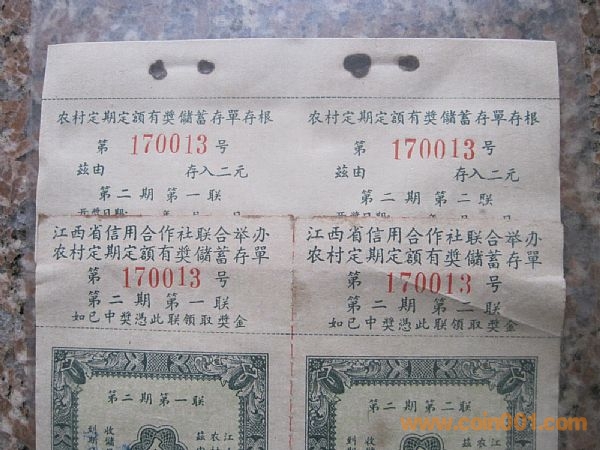 农村定期定額有獎儲蓄存單存根
第 170013 号
茲由 存入二元
第二期第一联
开獎日期: 年 月
农村定期定額有獎儲蓄存單存根
第 170013 号
茲由 存入二元
第二期第二联
开獎日期: 年 月
江西省信用合作社联合举办
农村定期定額有獎儲蓄存單
第 170013 号
第二期第一联
如已中獎憑此联領取獎金
江西省信用合作社联合举办
农村定期定額有獎儲蓄存單
第 170013 号
第二期第二联
如已中獎憑此联領取獎金
第二期第一联
第二期第二联
www.coin001.com